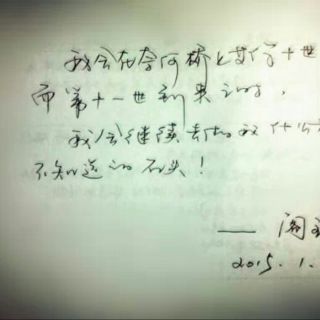 我会在奈何桥上等你十世
而第十一世到来之时,
我会继续去做那什么
不知道的石头!
—— 阎
2015.1.